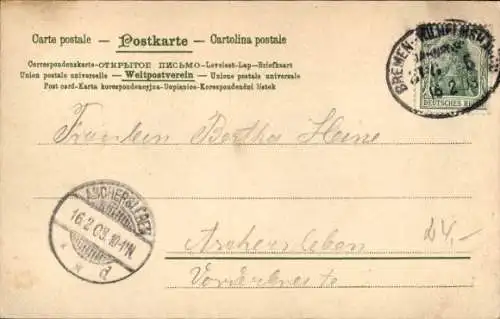 Carte postale – Postkarte – Cartolina postale
Correspondenzkarte–ОТКРЫТОЕ ПИСЬМО–Levelezö-Lap–Briefkaart
Union postale universelle – Weltpostverein – Unione postale universale
Post card-Karta korespondencyjna-Dopisnice-Korespondenční lístek
BREMEN-WILHELMSHAVEN
16 2 03
DEUTSCHES REICH
Fräulein Bertha Heine
ASCHERSLEBEN
16.2.03.10-11N.
* d
Aschersleben
24,-